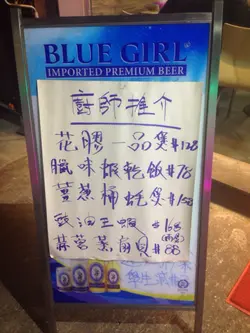 BLUE GIRL
IMPORTED PREMIUM BEER
廚師推介
花膠一品煲$128
臘味蝦乾飯$78
薑蔥桶蚝煲$158
豉油王蝦 $168
蒜茸蒸扇貝 $88